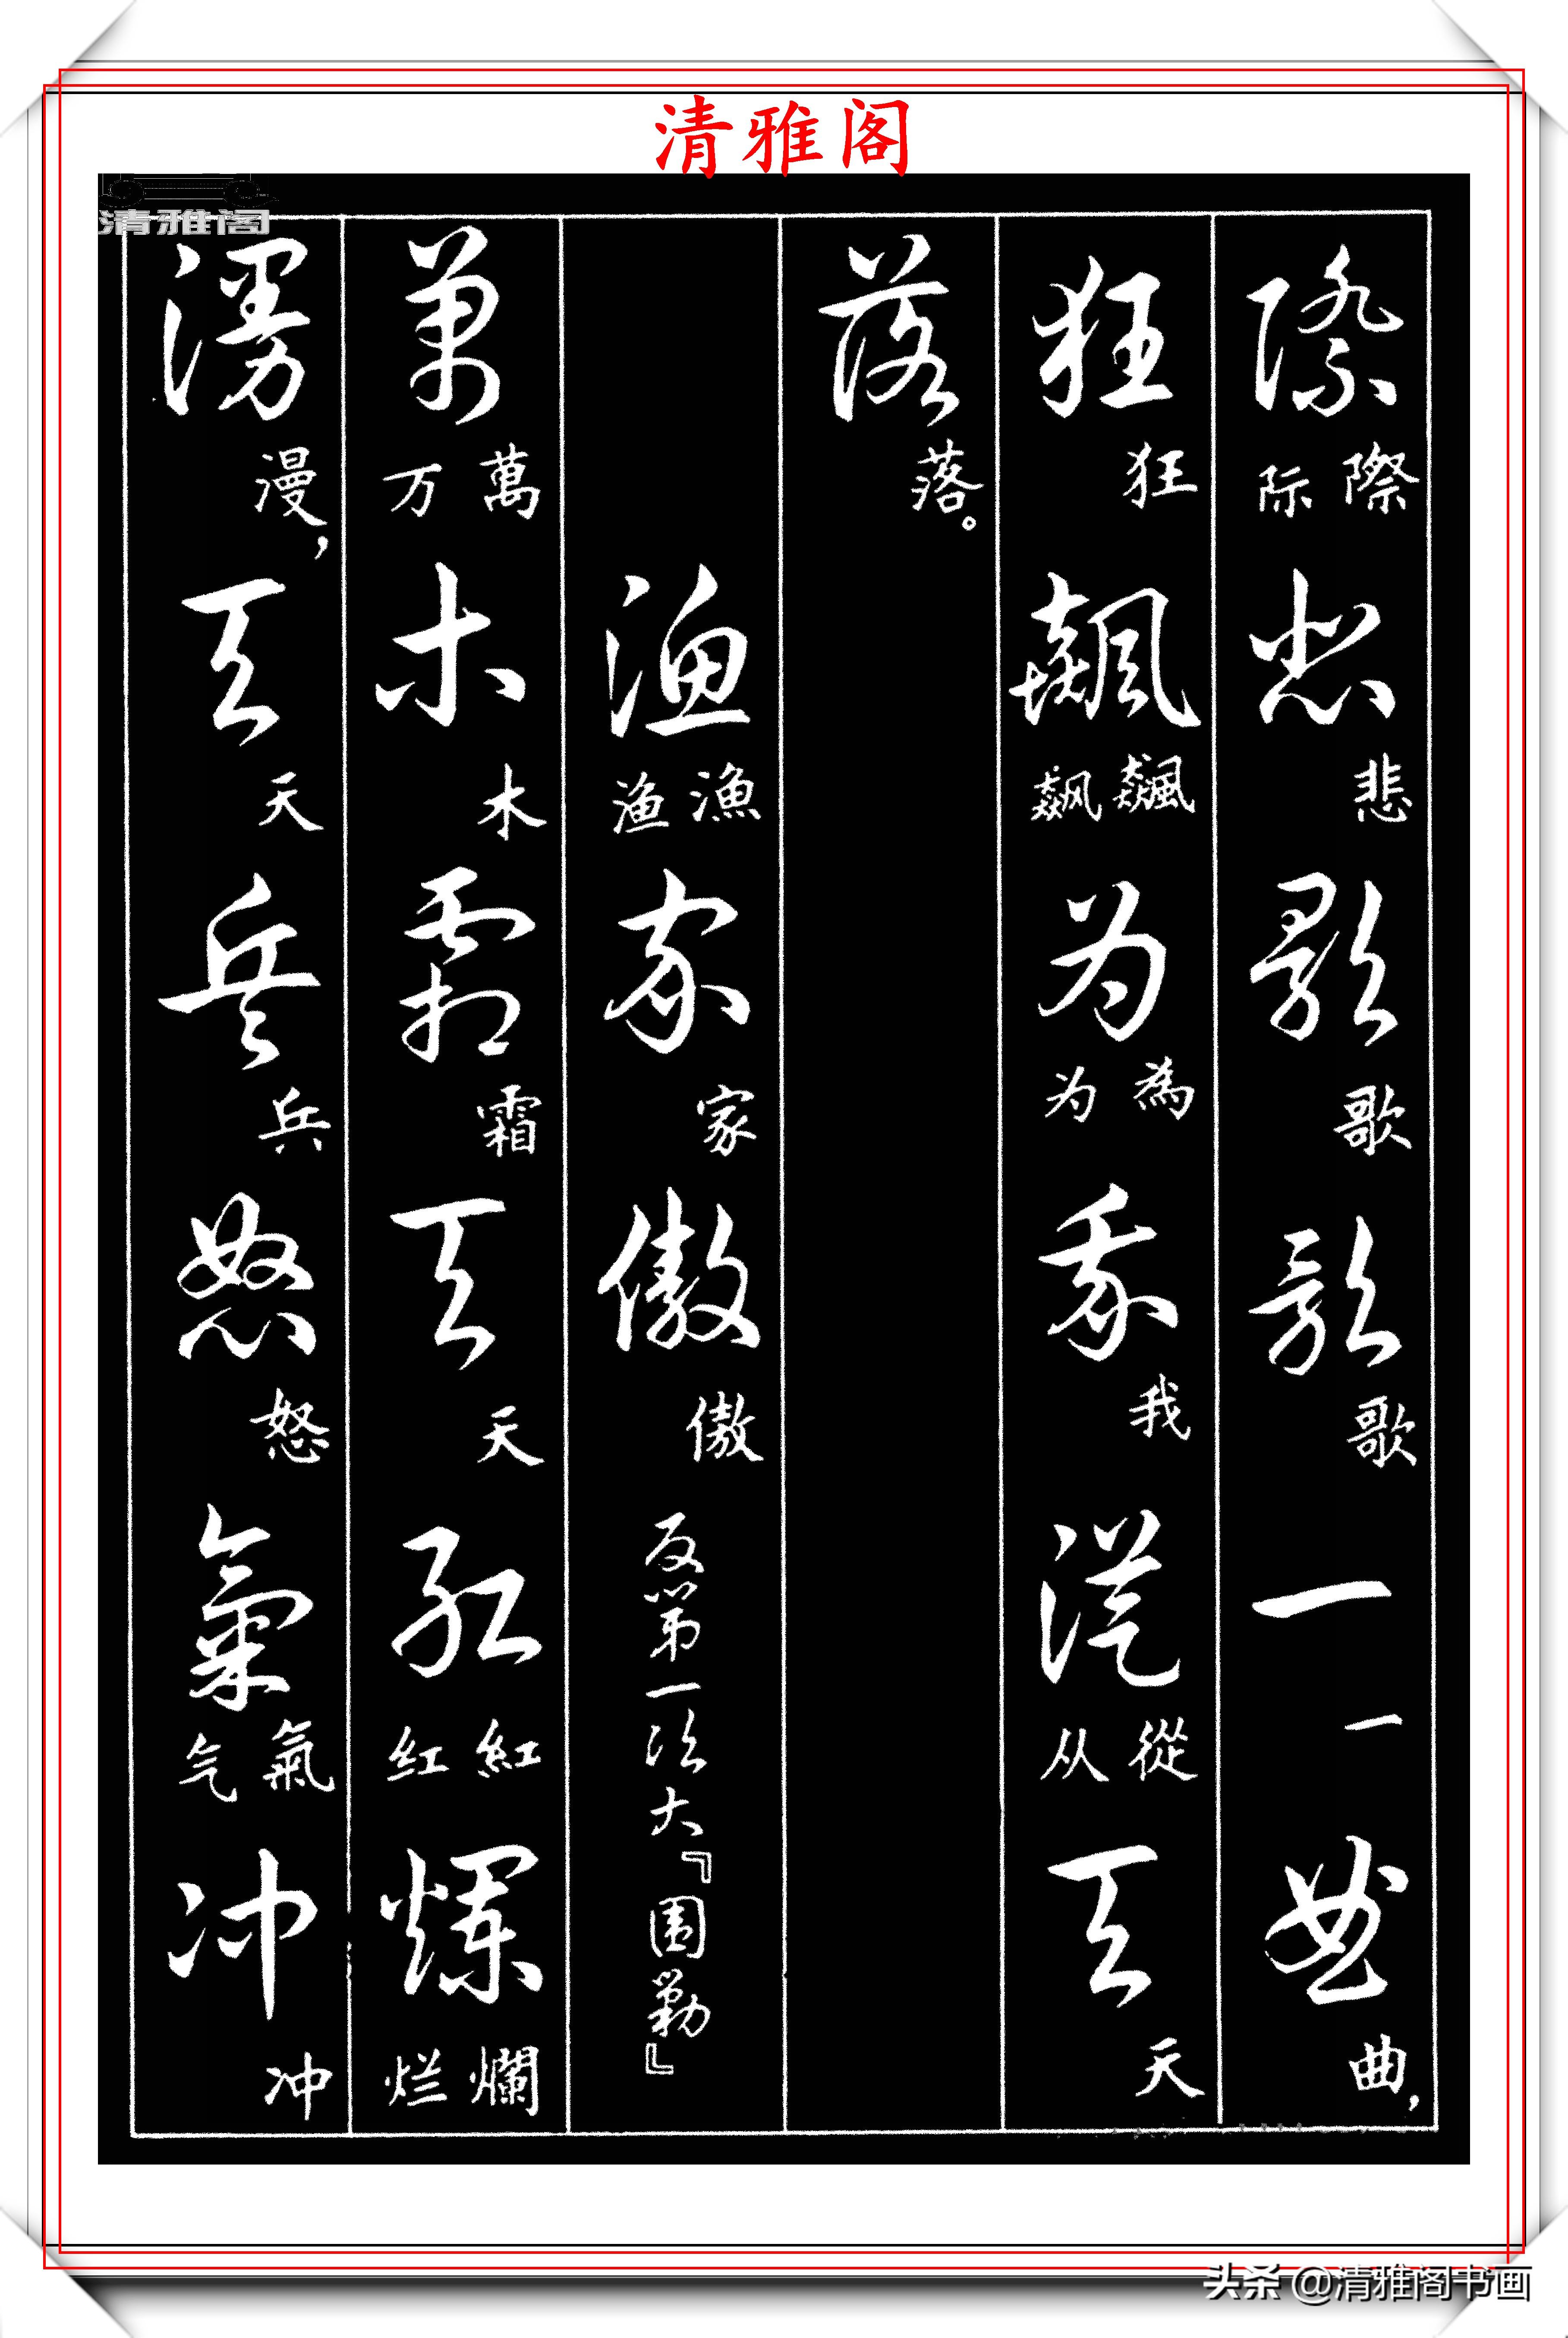 清雅阁
清雅阁
際 際 际 悲 悲 歌 歌 歌 歌 一 一 曲 曲，
狂 狂 飆 飆 飙 为 為 为 我 我 從 從 从 天 天
落 落。
渔 漁 渔 家 家 傲 傲 反第一次大『围勦』
萬 萬 万 木 木 霜 霜 天 天 红 紅 红 爛 爛 烂
漫 漫， 天 天 兵 兵 怒 怒 氣 氣 气 冲 冲
头条 @清雅阁书画